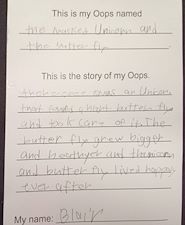 This is my Oops named
the Unicorn and
the butter fly
This is the story of my Oops.
there once was an Unicorn
that found a hurt butter fly
and took care of it. The
butter fly grew bigger
and
and butter fly lived happy
ever after
My name: Blair